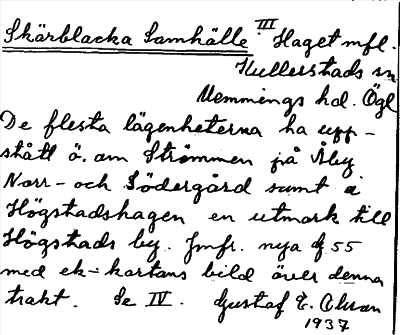 Skärblacka Samhälle. III Haget mfl.
Kullerstads sn
Memmings hd. Ögl
De flesta lägenheterna ha upp-
stått ö. om Strömmen på Åby
Norr- och Södergård samt å
Högstadshagen en utmark till
Högstads by. Jmfr. nya G 55
med ek-kartans bild över denna
trakt. Se IV. Gustaf E. Olsson
1937